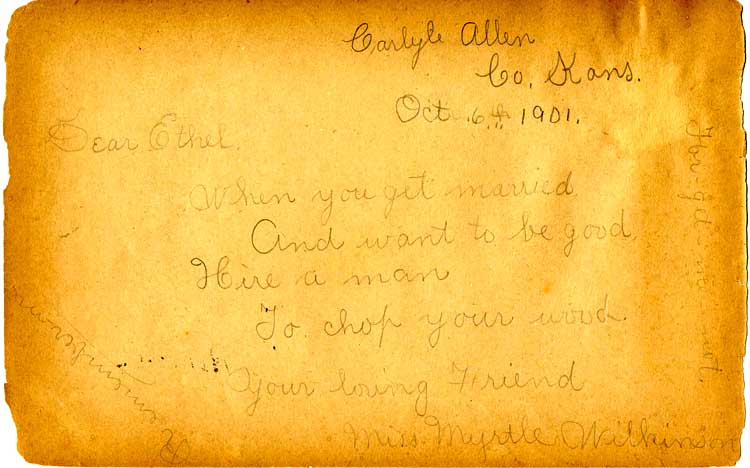 Carlyle Allen
Co, Kans.
Oct. 6th 1901.
Dear Ethel.
When you get married
And want to be good,
Hire a man
To chop your wood.
Your loving Friend
Miss Myrtle Wilkinson
Forget me not.